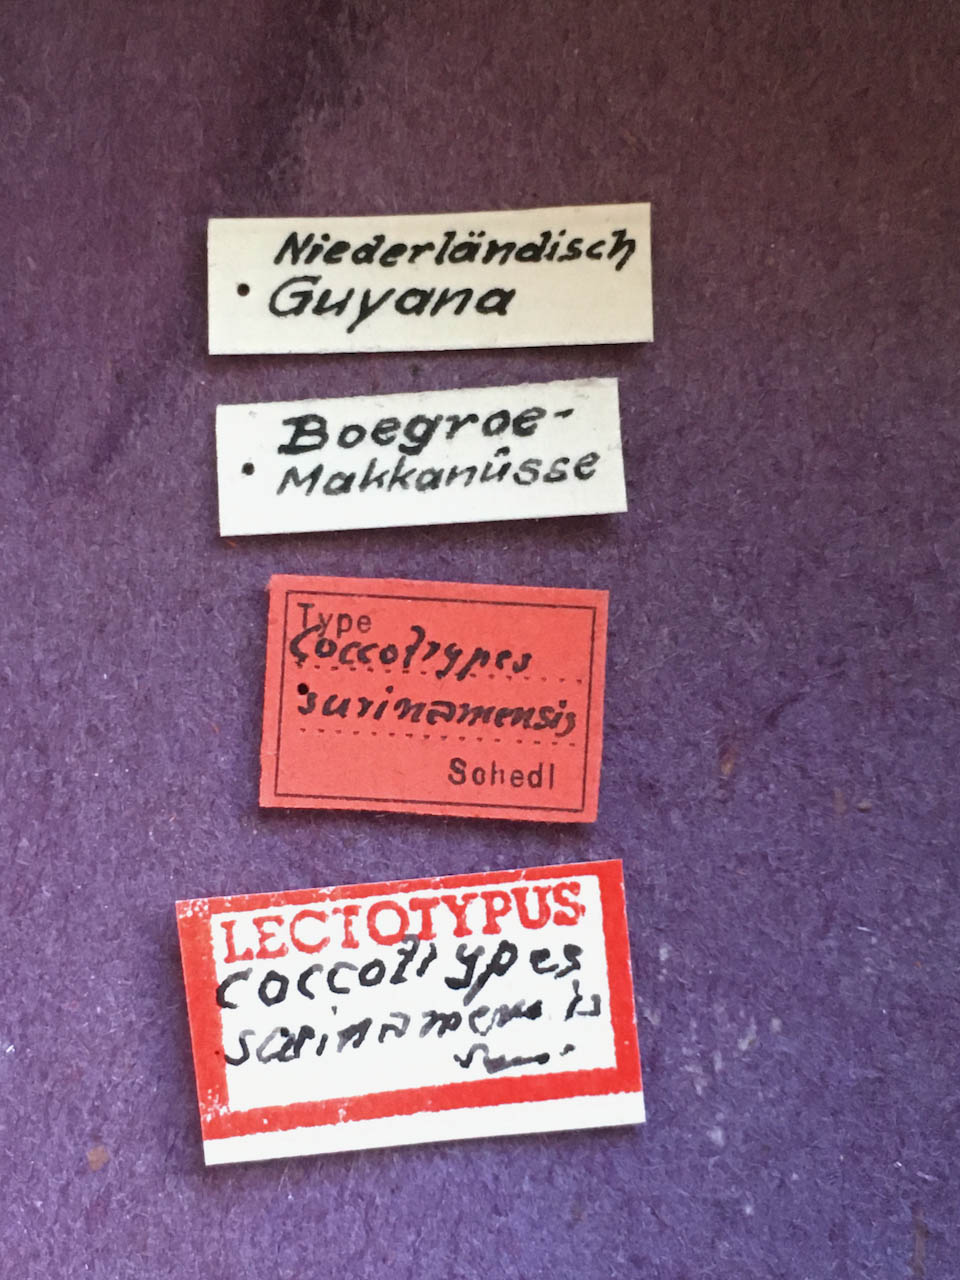 Niederländisch
Guyana
Boegroe-
Makkanüsse
Type
Coccotrypes
surinamensis
Schedl
LECTOTYPUS
coccotrypes
surinamensis